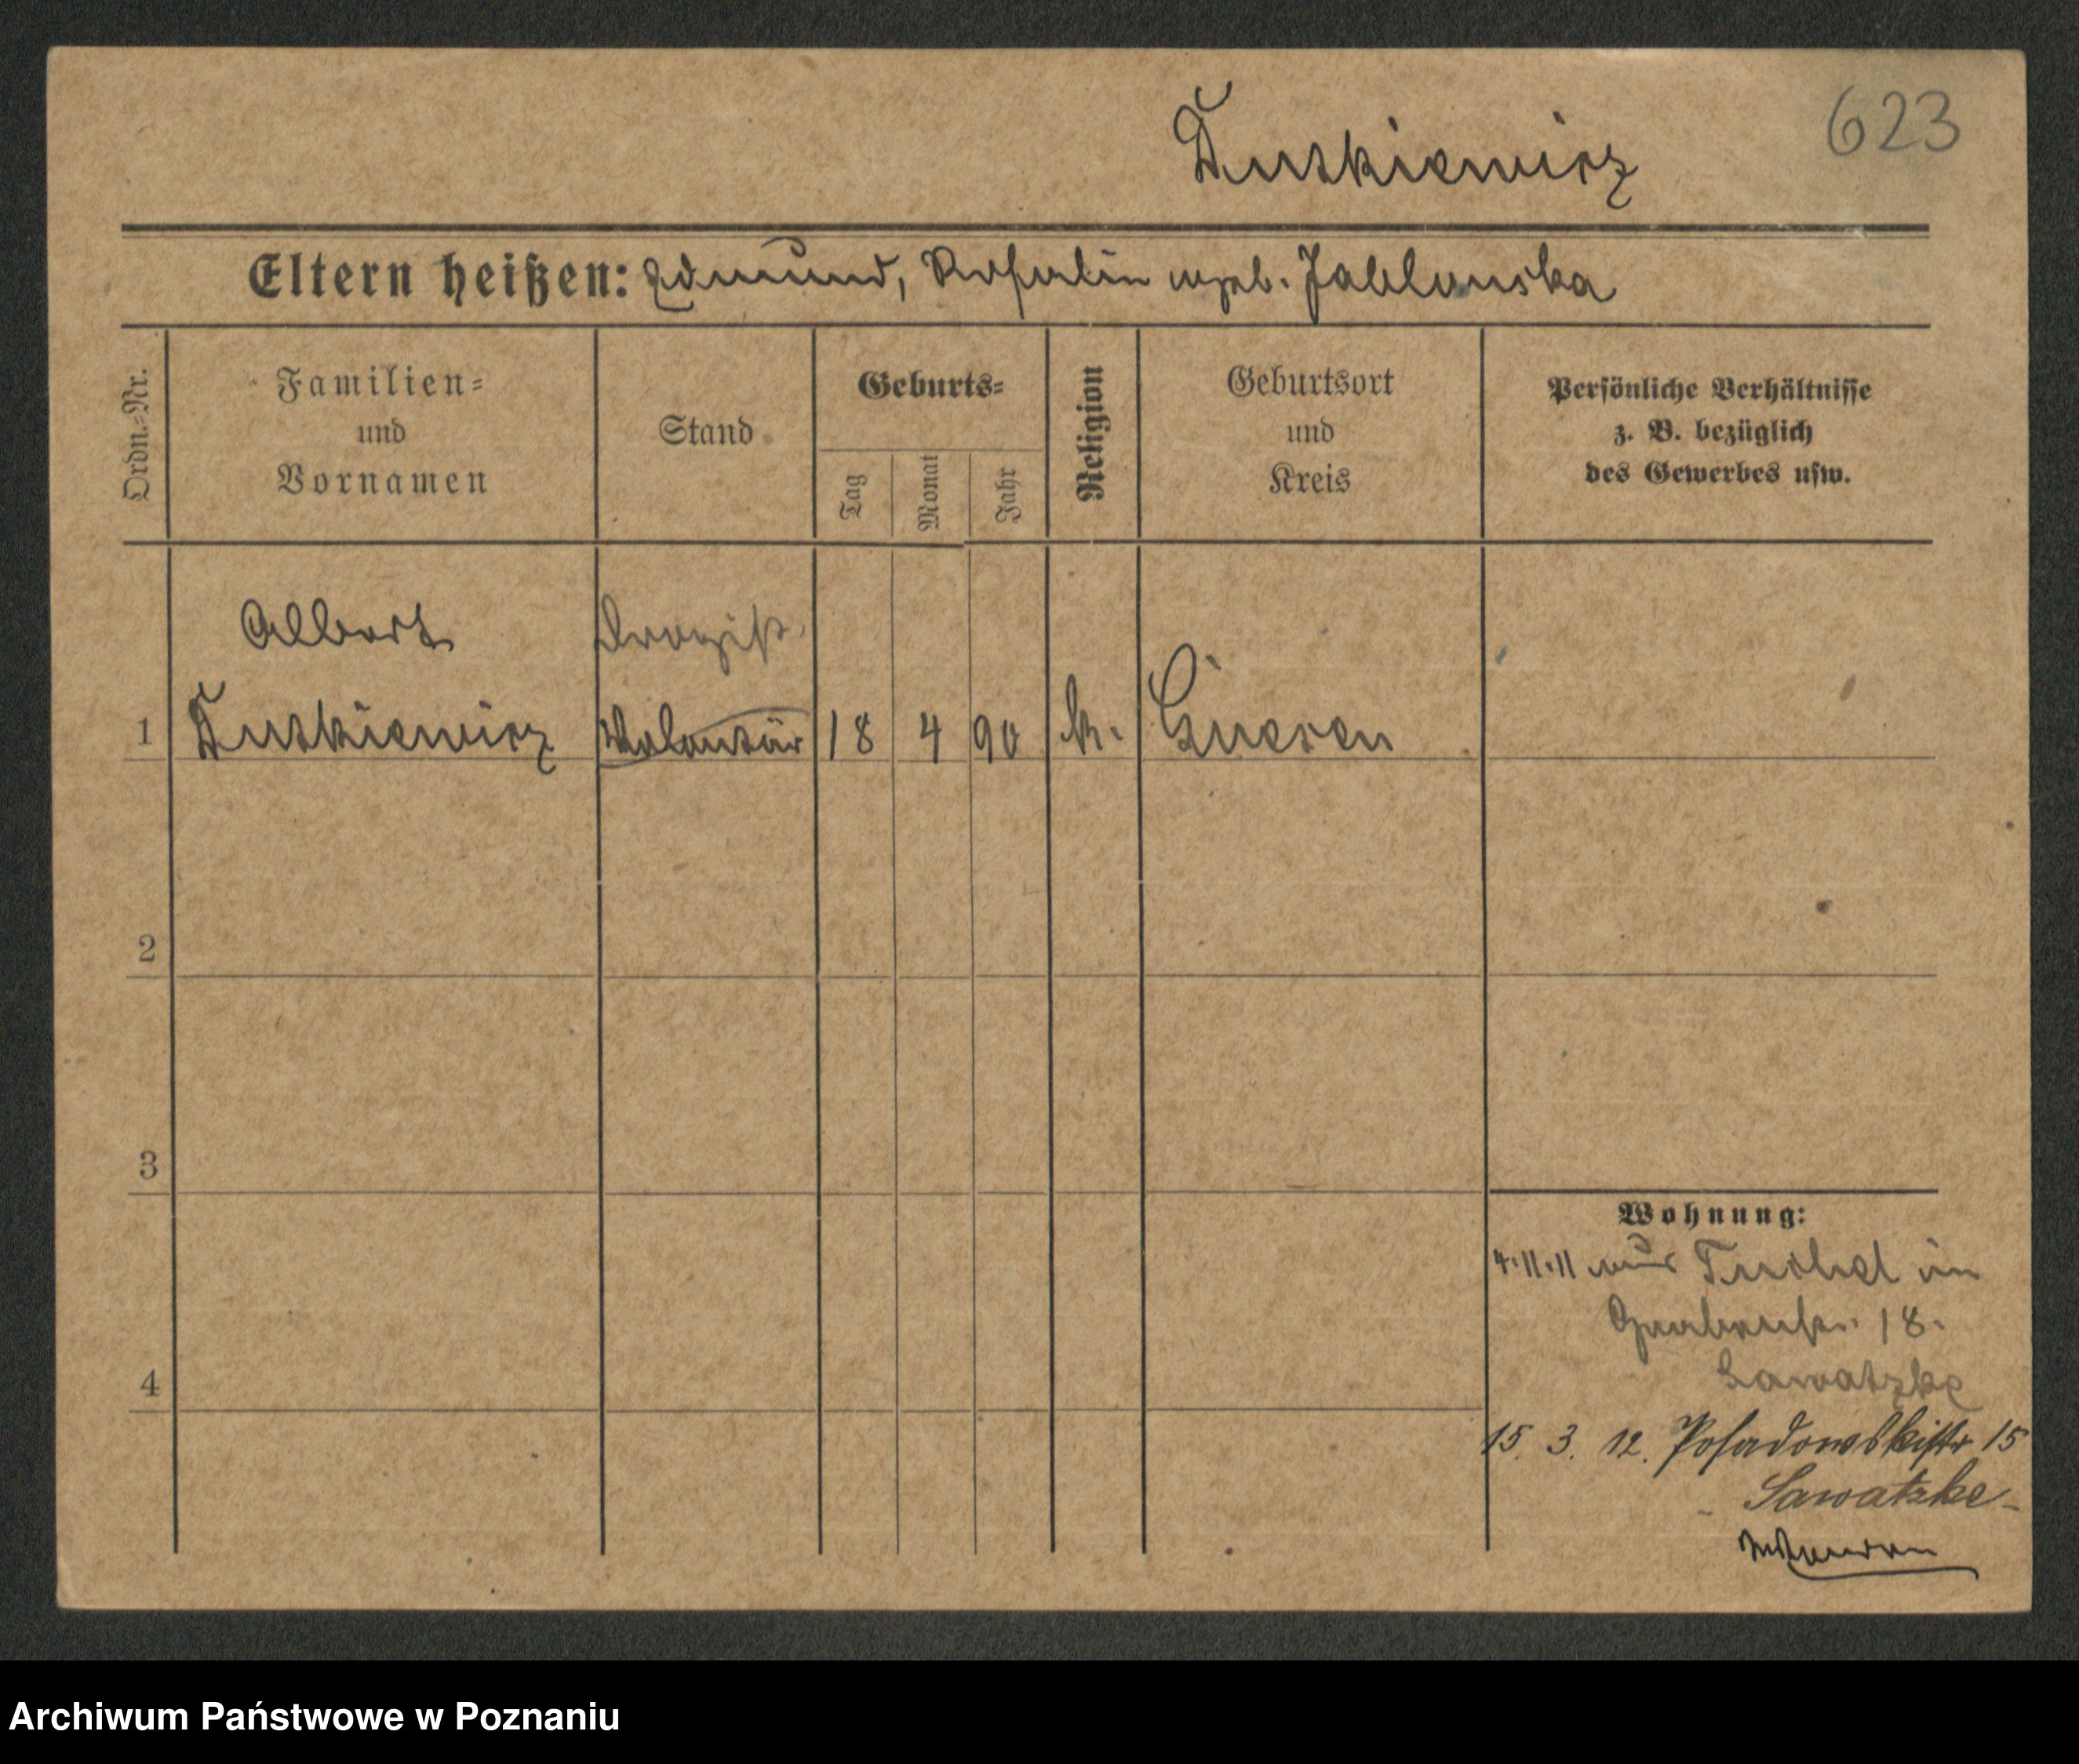 623
Dutkiewicz
Eltern heißen: Edmund, Rosalie geb. Jablonska
Ordn.-Nr.
Familien-
und
Vornamen
Stand
Geburts-
Tag
Monat
Jahr
Religion
Geburtsort
und
Kreis
Persönliche Verhältnisse
z. B. bezüglich
des Gewerbes usw.
Albert Drogist
1 Dutkiewicz Volontär 18 4 90 k. Gnesen
2
3
Wohnung:
4.11.11 aus Tuchel in
Grabenstr. 18.
Sawatzke
4
15. 3. 12. Posadowskistr 15
Sawatzke
Archiwum Państwowe w Poznaniu